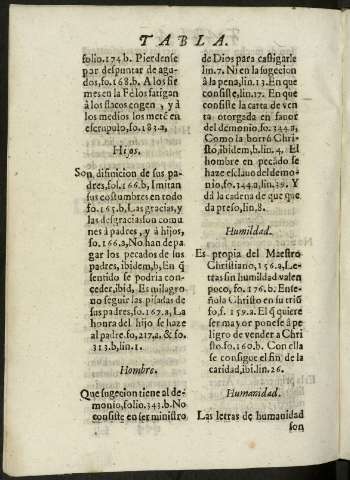 TABLA.
folio.174.b. Pierdense
por despuntar de agu-
dos, fo.168.b. A los fir
mes en la Fè los fatigan
à los flacos cogen, y à
los medios los metē en
escrupulo, fo.183.a,
Hijos.
Son difinicion de sus pa-
dres, fol.166.b, Imitan
sus costumbres en todo
fo.165.b, Las gracias, y
las desgracias son comu
nes à padres, y à hijos,
fo.166.a, No han de pa-
gar los pecados de sus
padres, ibidem, b, En q̄
sentido se podria con-
ceder, ibid, Es milagro
no seguir las pisadas de
sus padres, fo.167.a, La
honra del hijo se haze
al padre. fo, 217, a. & fo.
313.b, lin.1.
Hombre.
Que sugecion tiene al de-
monio, folio.343.b. No
consiste en ser ministro
de Dios para castigarle
lin.7. Ni en la sugecion
à la pena, lin.13. En que
consiste, lin.17. En que
consiste la carta de ven
ta otorgada en favor
del demonio, fo.344.a,
Como la borrò Chri-
sto, ibidem, b. lin.4. El
hombre en pecado se
haze esclavo del demo-
nio, fo.344.a, lin.39. Y
dà la cadena de que que
da preso, lin.8.
Humildad.
Es propia del Maestro
Christiano, 156.a, Le-
tras sin humildad valen
poco, fo.176.b. Ense-
ñola Christo en su triū
fo, f. 159.a. El q̄ quiere
ser mayor ponese à pe
ligro de vender a Chri
sto. fo.160.b. Con ella
se consigue el fin de la
caridad, ibi. lin.26.
Humanidad.
Las letras de humanidad
son